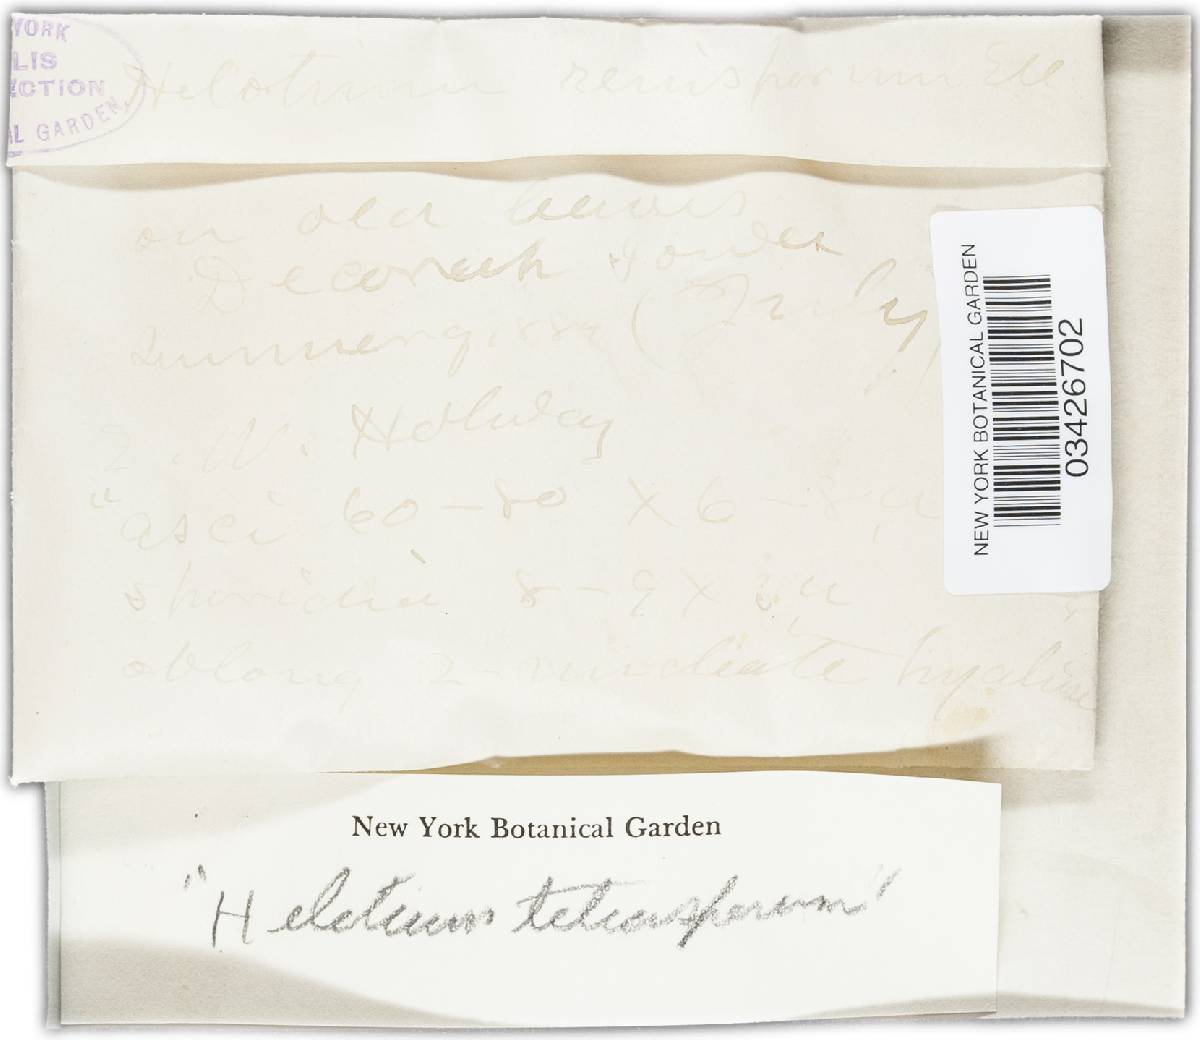 YORK
LIS
ECTION
AL GARDEN,
Helotium renisporum Ell
on old leaves
Decorah Iowa
(July)
Holway
"asci 60-80 X 6-8 u
sporidia 8-9 X u
oblong 2-nucleate hyaline
NEW YORK BOTANICAL GARDEN
03426702
New York Botanical Garden
"Helotium tetrasporum"